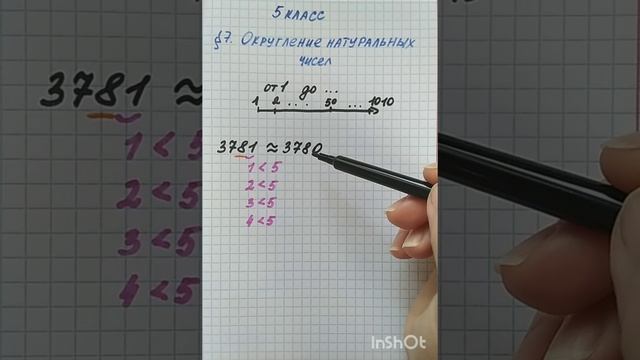 5 класс
§7. Округление натуральных
чисел
от 1 до ...
1 2 ... 50 ... 1010
3781 ≈ 3780
1 < 5
2 < 5
3 < 5
4 < 5
InShOt